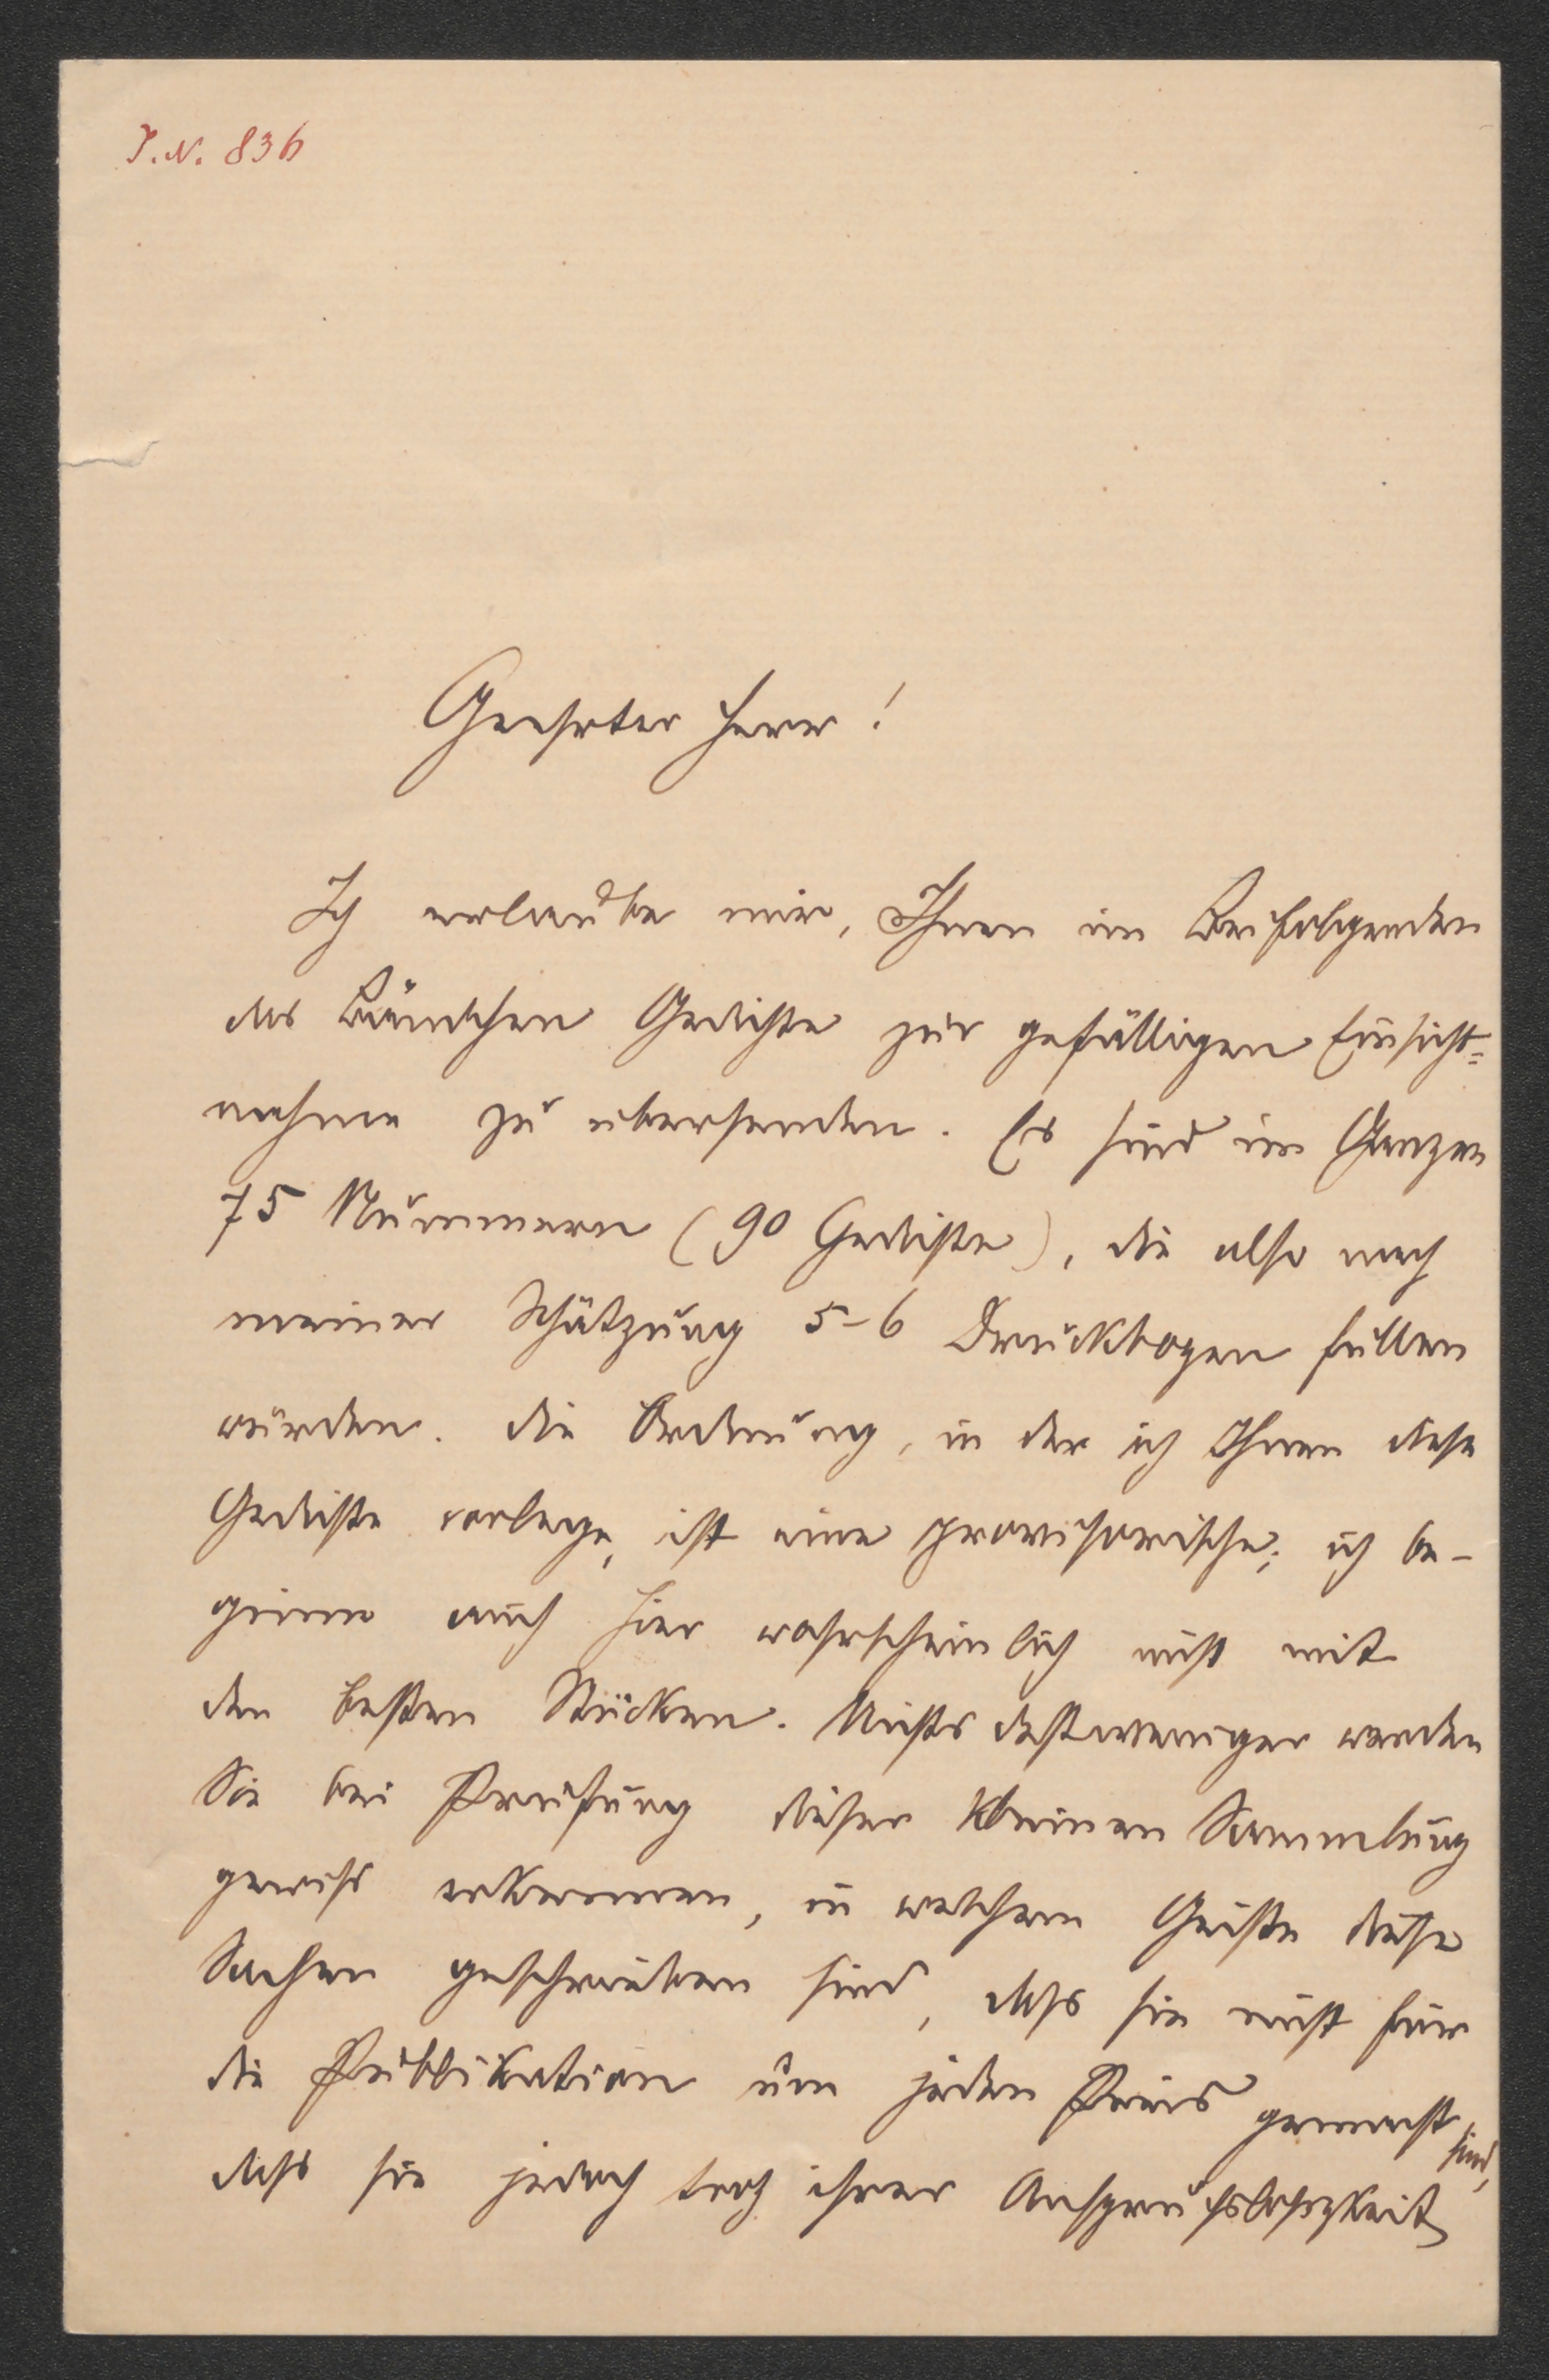 J. N. 836
Geehrter Herr!
Ich erlaube mir, Ihnen im Beifolgenden
das Bändchen Gedichte zur gefälligen Einsicht=
nahme zu übersenden. Es sind im Ganzen
75 Nummern (90 Gedichte), die also nach
meiner Schätzung 5-6 Druckbogen füllen
würden. Die Ordnung, in der ich Ihnen diese
Gedichte vorlege, ist eine provisorische; ich be-
ginne auch hier wahrscheinlich nicht mit
den besten Stücken. Nichts destoweniger werden
Sie bei Prüfung dieser kleinen Sammlung
gewiss erkennen, in welchem Geiste diese
Sachen geschrieben sind, dass sie nicht für
die Publikation um jeden Preis gemacht sind,
dass sie jedoch troz ihrer Anspruchslosigkeit